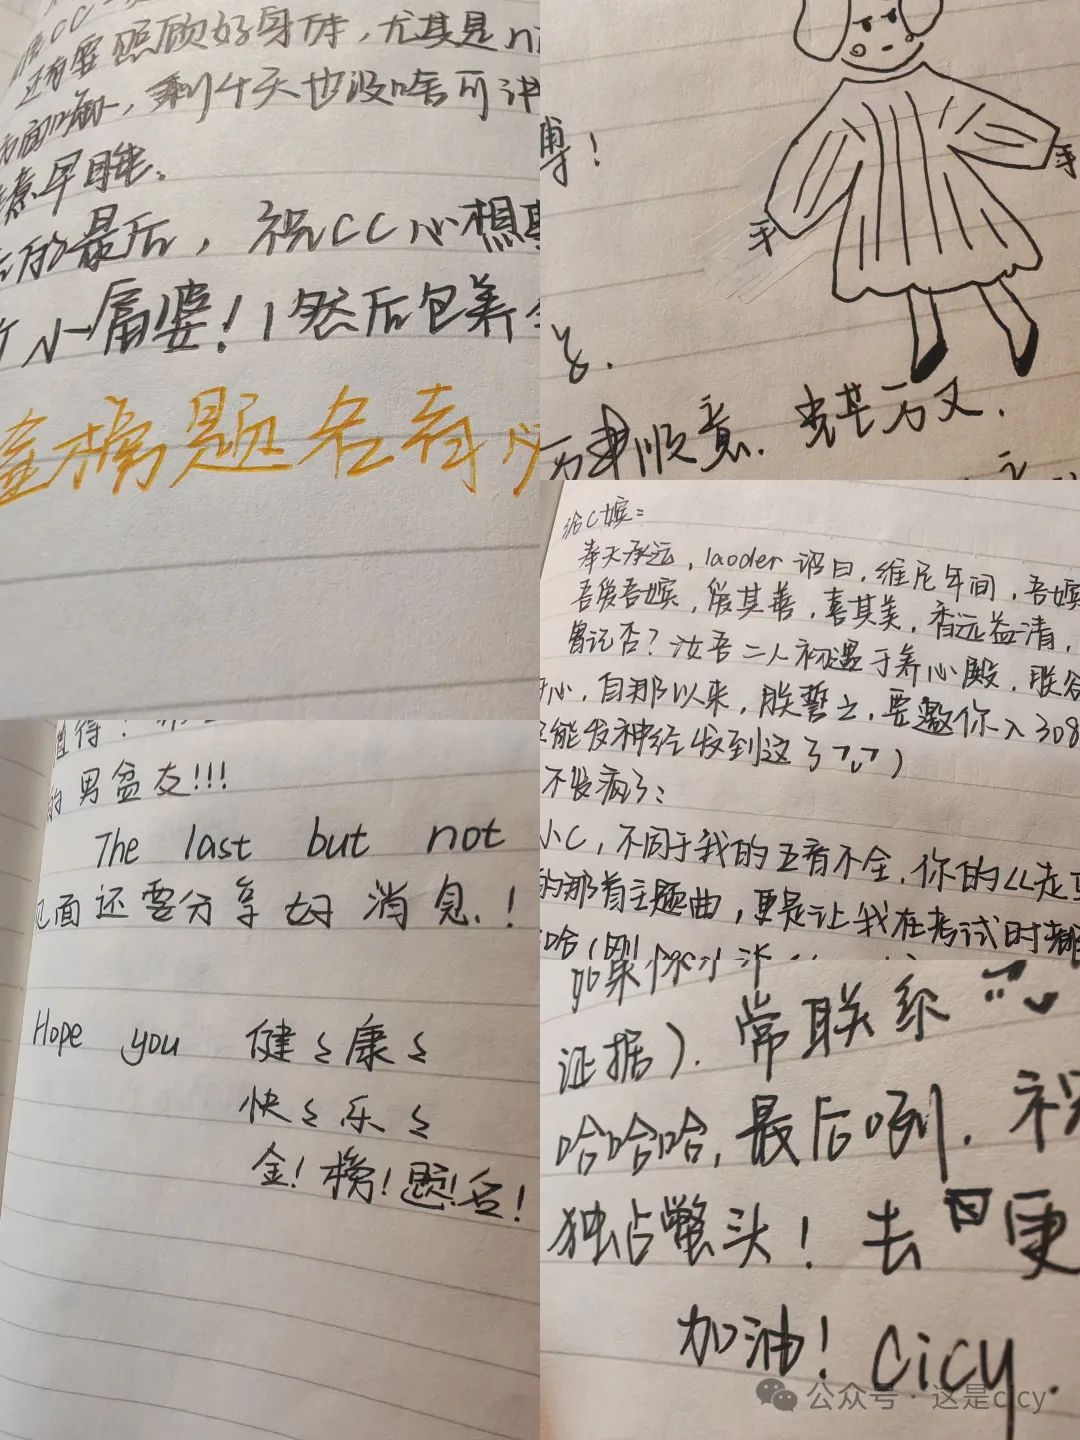 还有要照顾好身体，尤其是
剩4天也没啥可讲
早睡。
最后，祝CC心想事
小富婆！然后包养
金榜题名
博！
手
手
万事顺意
给C嫔：
奉天承运，laoder诏曰，维尼年间，吾嫔
吾爱吾嫔，爱其善，喜其美，香远益清，
曾记否？汝吾二人初遇于养心殿，朕
自那以来，朕誓之，要邀你入308
能发神经发到这了
不发病了：
小C，不同于我的五音不全，你的
的那首主题曲，更是让我在考试时都
值得！
男盆友!!!
The last but not
见面还要分享好消息！
Hope you 健健康康
快快乐乐
金！榜！题！名！
如果你
证据）.常联系
哈哈哈，最后咧.祝
独占鳌头！去
加油！Cicy.
公众号·这是cicy